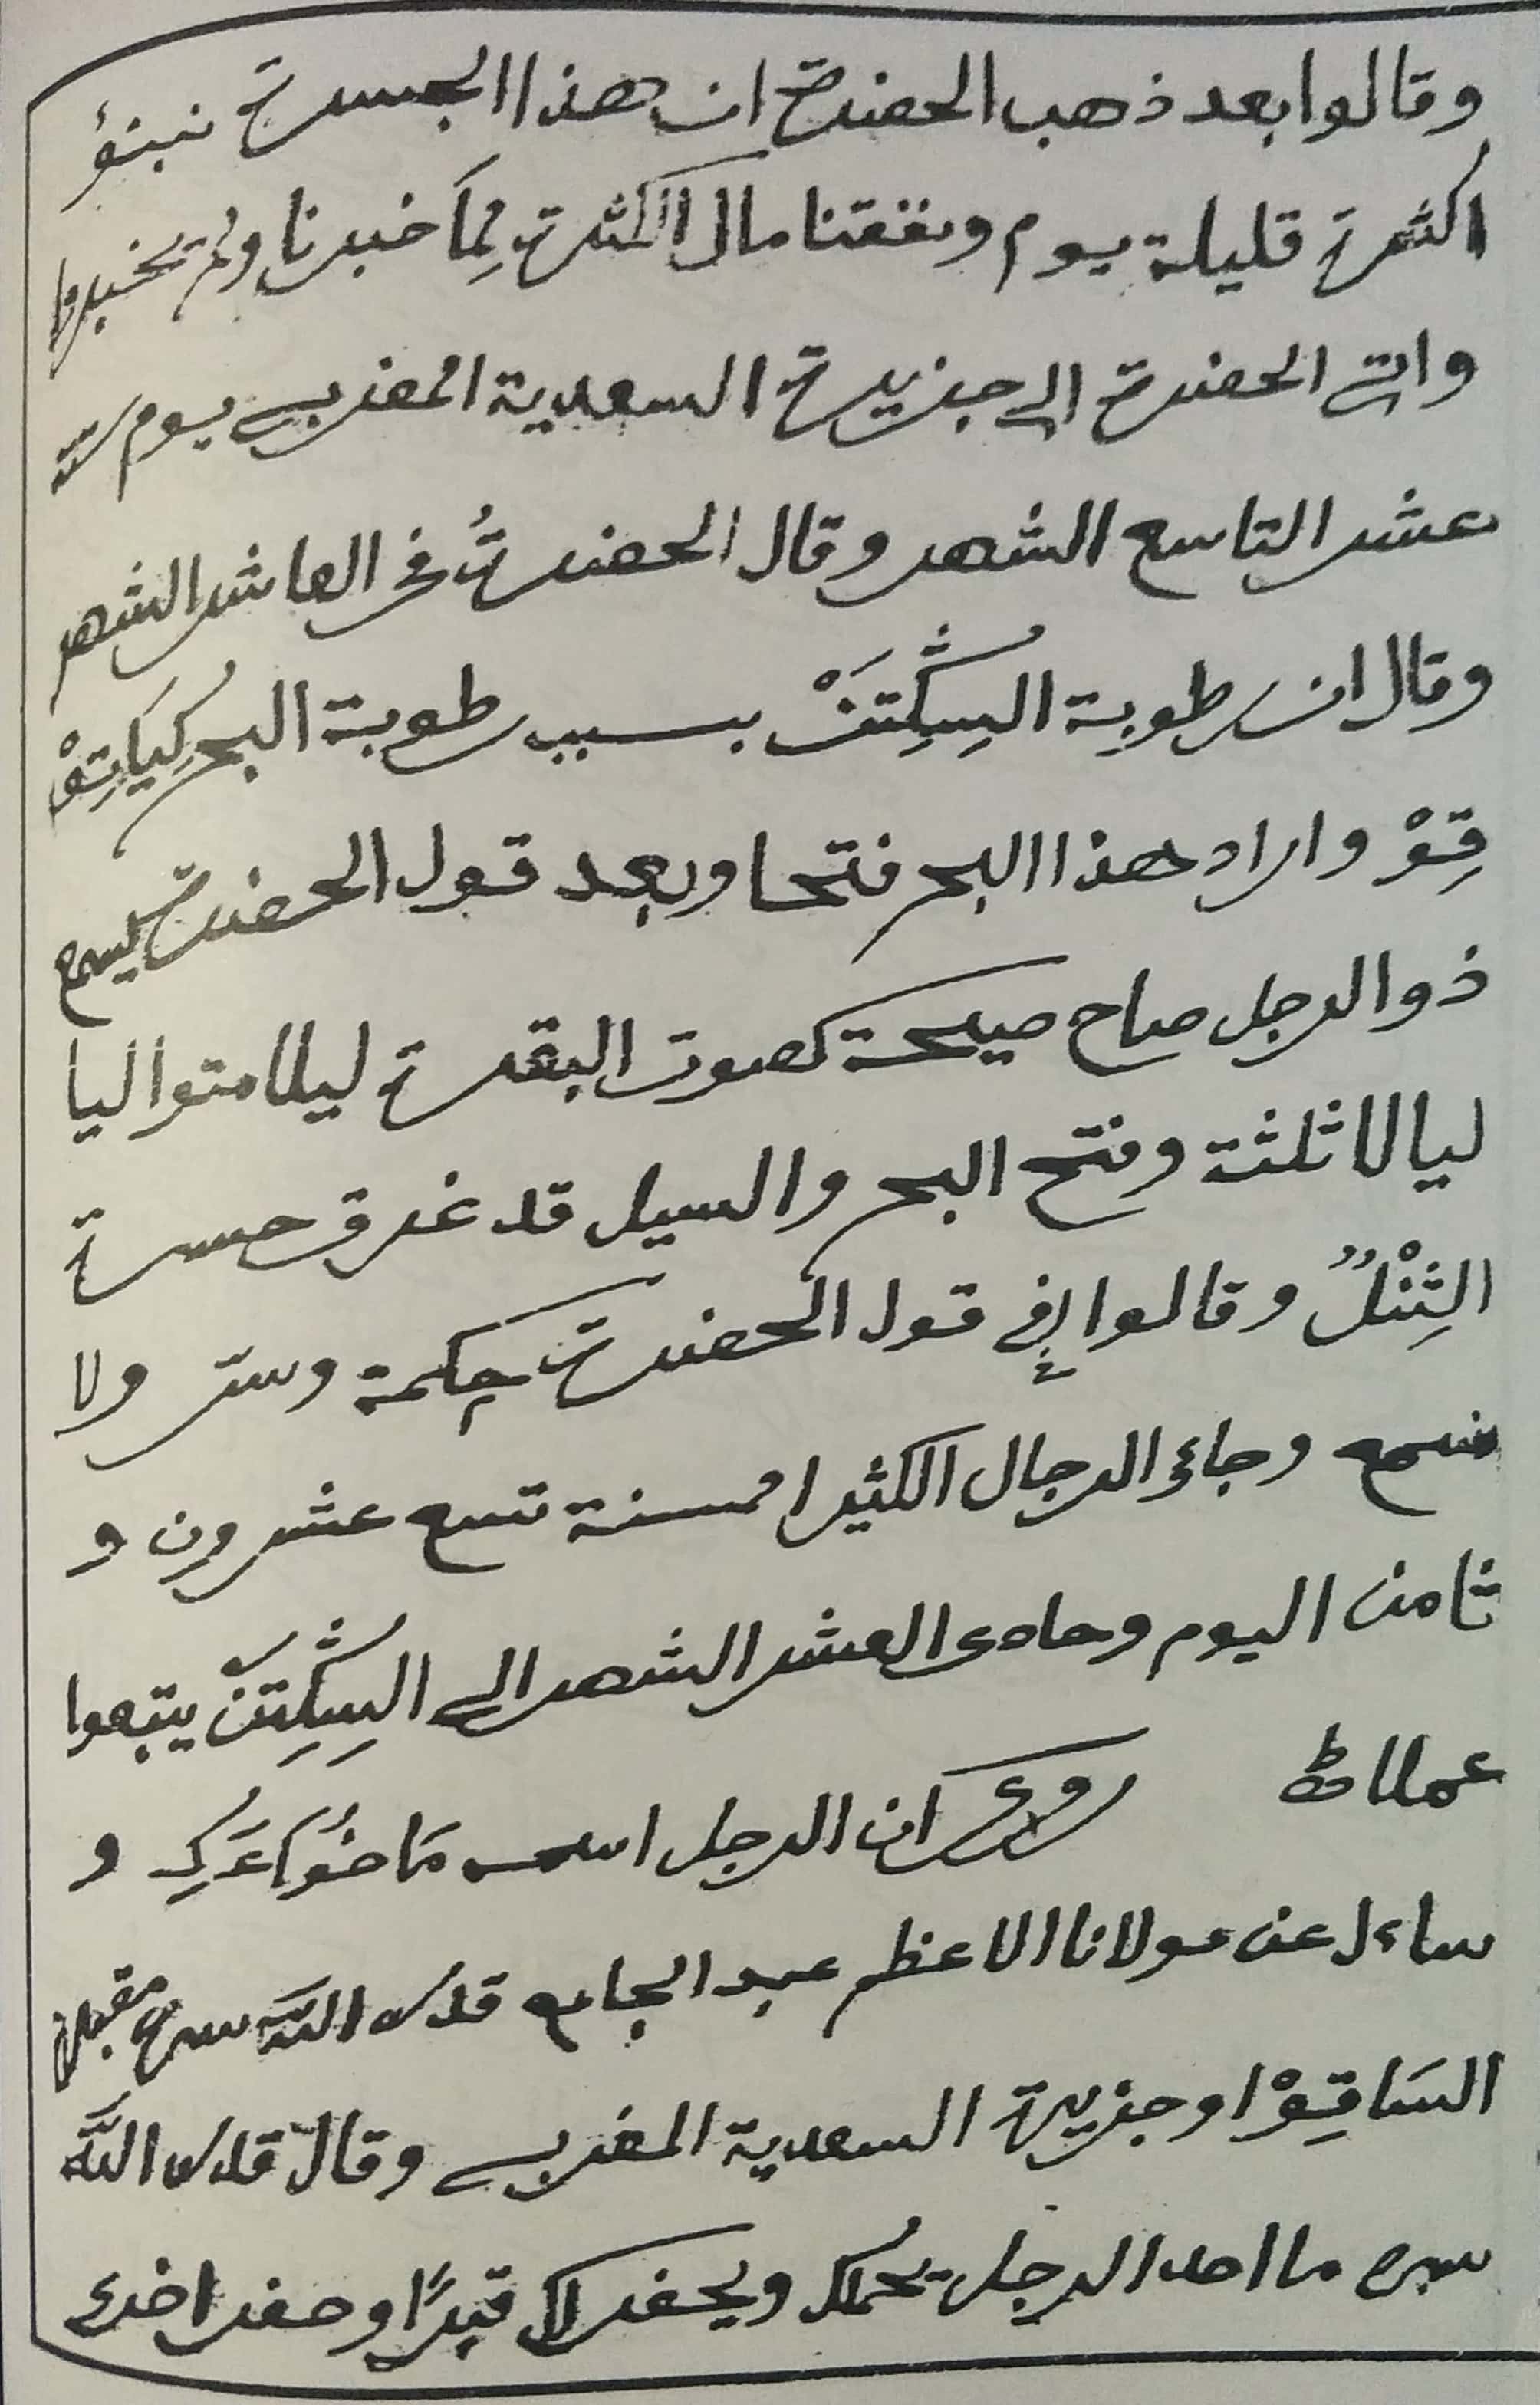 وقالوا بعد ذهب الحضرة ان هذا الجسرة نبنؤ
اكثرة قليلة يوم ونفقنا مال الكثرة لما خبرنا ولم تخبرنا
واتى الحضرة الى جزيرة السعدية المغربى يوم ستة
عشر التاسع الشهر وقال الحضرتُ فى العاشر الشهر
وقال ان رطوبة السِكِتَنْ بسبب رطوبة البحر كِيَاتِوْ
قِوْ واراد هذا البحر فتحا وبعد قول الحضرة ليسمع
ذو الرجل صاح صيحة كصوت البقرة ليلا متواليا
ليالا ثلثة وفتح البحر والسيل قد غرق جسرة
الثِنْلٌ وقالوا فى قول الحضرة حكمة وستر ولا
نسمع وجائ الرجال الكثيرا مسنة تسع عشرون و
ثامن اليوم وحادى العشر الشهر الى السِكِتَنْ يتبعوا
عملاط روى ان الرجل اسمه مَاخُوْاعَرَكِ و
ساءل عن مولانا الاعظم عبد الجامع قدس اللّه سره مقبرة
السَاقِوْ او جزيرة السعدية المغربى وقال قدس اللّه
سره ما احد الرجل يحملُك ويحفر لك قبرًا وحفر اخرى